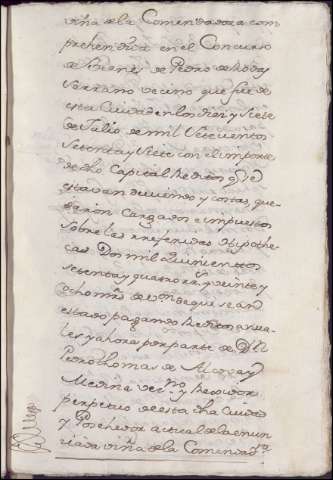 viña de la Comendadora com
prehendida en el Concurso
de Vienes de Pedro de Rodas
Serrano vecino que fue de
esta Ciudad en los diez y Siete
de Julio de mil Setecientos
Setenta y Siete con el importe
de dho Capital Reditos q.e se
estavan deviendo y costas, que
daron Cargados e impuestos
sobre las rreferidas Hypothe
cas Dos mil quinientos
setenta y quatro rr.s veinte y
ocho mrs de v.on de que se an
estado pagando Reditos anua
les y ahora por parte de D.n
Pedro thomas de
Medina vec.no y Rexidor
perpetuo de esta dha Ciudad
y Posehedor actual de la enun
ziada viña de la Comendad.ra